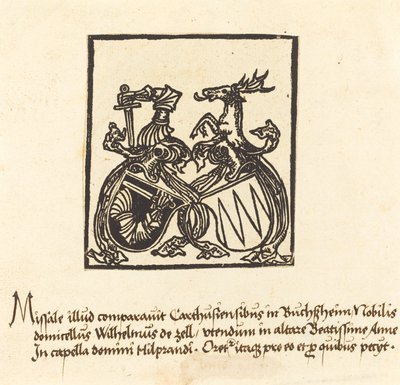 Missale illud comparavit Carthusiensibus in Buchßheim / Nobilis
domicellus Wilhelmus de Zell / vtendum in altare Beatissime Anne
In capella domini Hilprandi . Oretr itaqz pro eo et p quibus petyt .